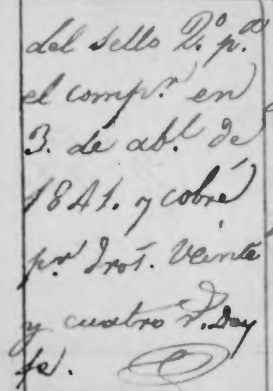 del sello 2.º p.ª
el comp.r en
3. de ab.l de
1841. y cobré
p.r dros. veinte
y cuatro r.s Doy
fe.